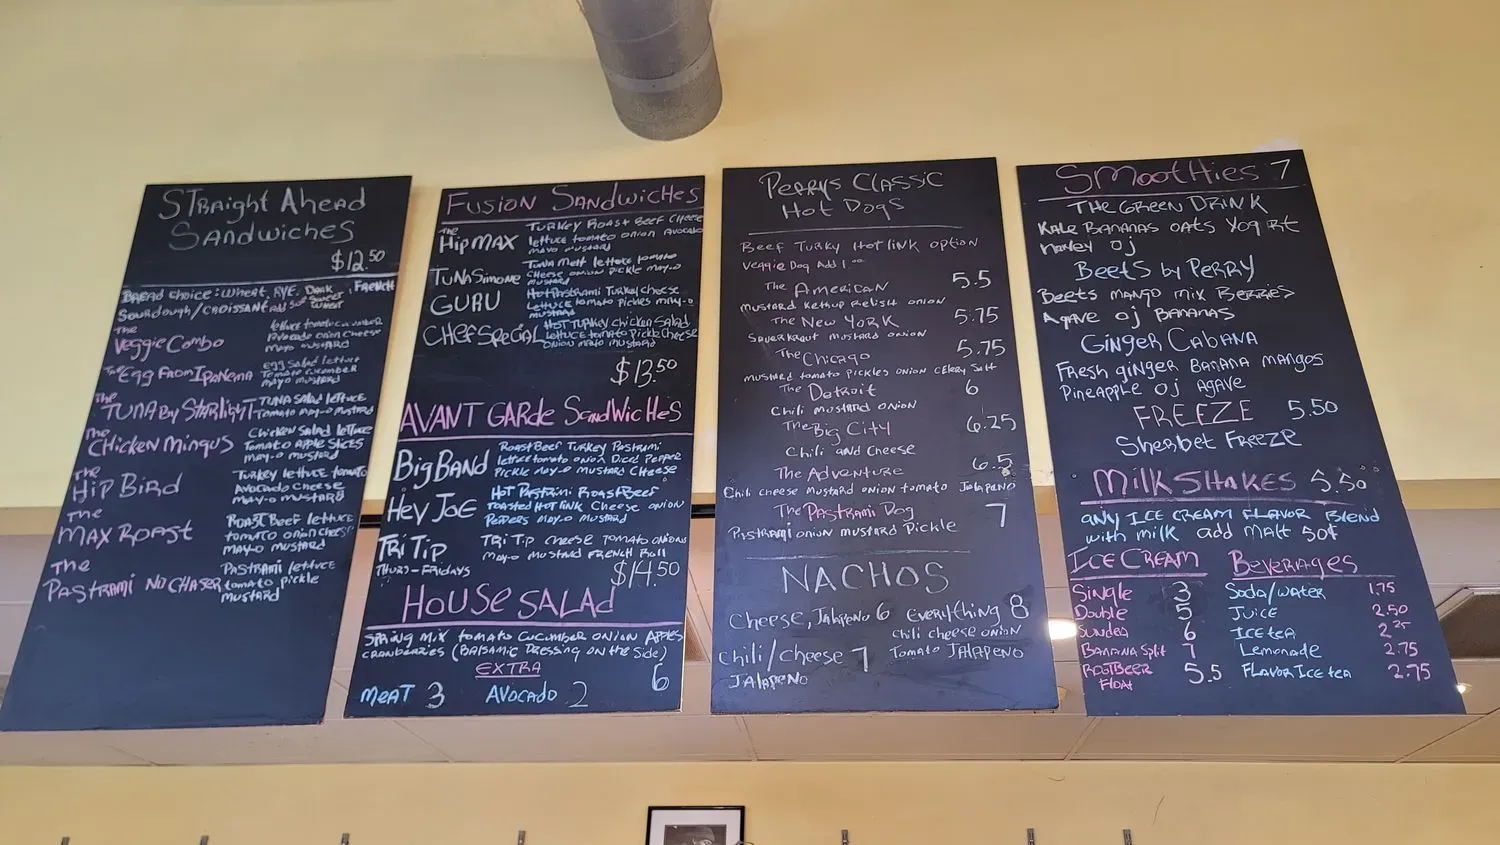 STraight Ahead
Sandwiches
$12.50
Bread choice: wheat, RYE, Dark, French
Sourdough/croissant add 50¢ sweet wheat
The Veggie Combo
Avocado onion cheese
mayo mustard
The Egg From Ipanema
egg salad lettuce
tomato cucumber
mayo mustard
The Tuna By Starlight
Tuna salad lettuce
tomato may-o mustard
The Chicken Mingus
Chicken salad lettuce
tomato Apple slices
may-o mustard
The Hip Bird
Turkey lettuce tomato
Avocado cheese
may-o mustard
The Max Roast
Roast Beef lettuce
tomato onion cheese
may-o mustard
The Pastrami No Chaser
Pastrami lettuce
tomato pickle
mustard
Fusion Sandwiches
The Hip Max
Turkey Roast Beef cheese
lettuce tomato onion avocado
mayo mustard
Tuna Simone
Tuna melt lettuce tomato
cheese onion pickle may-o
mustard
GURU
Hot Pastrami Turkey cheese
lettuce tomato pickles may-o
mustard
Chef Special
Hot Turkey chicken salad
lettuce tomato pickle cheese
onion mayo mustard
$13.50
Avant Garde Sandwiches
Big Band
Roast Beef Turkey Pastrami
lettuce tomato onion Diced Pepper
Pickle may-o mustard cheese
Hey Joe
Hot Pastrami Roast Beef
Toasted Hotlink cheese onion
Peppers may-o mustard
Tri Tip
Thurs-Fridays
Tri Tip cheese tomato onions
may-o mustard French Roll
$14.50
House Salad
Spring mix tomato cucumber onion Apples
cranberries (Balsamic Dressing on the side)
6
EXTRA
Meat 3 Avocado 2
Perrys Classic
Hot Dogs
Beef Turky Hotlink option
Veggie Dog Add 1.00
The American 5.5
mustard ketchup relish onion
The New York 5.75
Saverkraut mustard onion
The Chicago 5.75
mustard tomato pickles onion celery salt
The Detroit 6
Chili mustard onion
The Big City 6.25
Chili and cheese
The Adventure 6.5
Chili cheese mustard onion tomato Jalapeno
The Pastrami Dog 7
Pastrami onion mustard pickle
NACHOS
Cheese, Jalapeno 6
Everything 8
chili cheese onion
tomato Jalapeno
Chili/cheese 7
Jalapeno
Smoothies 7
The Green Drink
Kale Bananas oats Yogurt
honey oj
Beets by Perry
Beets mango mix Berries
Agave oj Bananas
Ginger Cabana
Fresh ginger Banana mangos
Pineapple oj agave
FREEZE 5.50
Sherbet Freeze
Milk Shakes 5.50
any ice cream flavor blend
with milk add malt 50¢
Ice Cream
Single 3
Double 5
Sundea 6
Banana Split 7
Rootbeer Float 5.5
Beverages
Soda/water 1.75
Juice 2.50
Ice tea 2.25
Lemonade 2.75
Flavor Ice tea 2.75